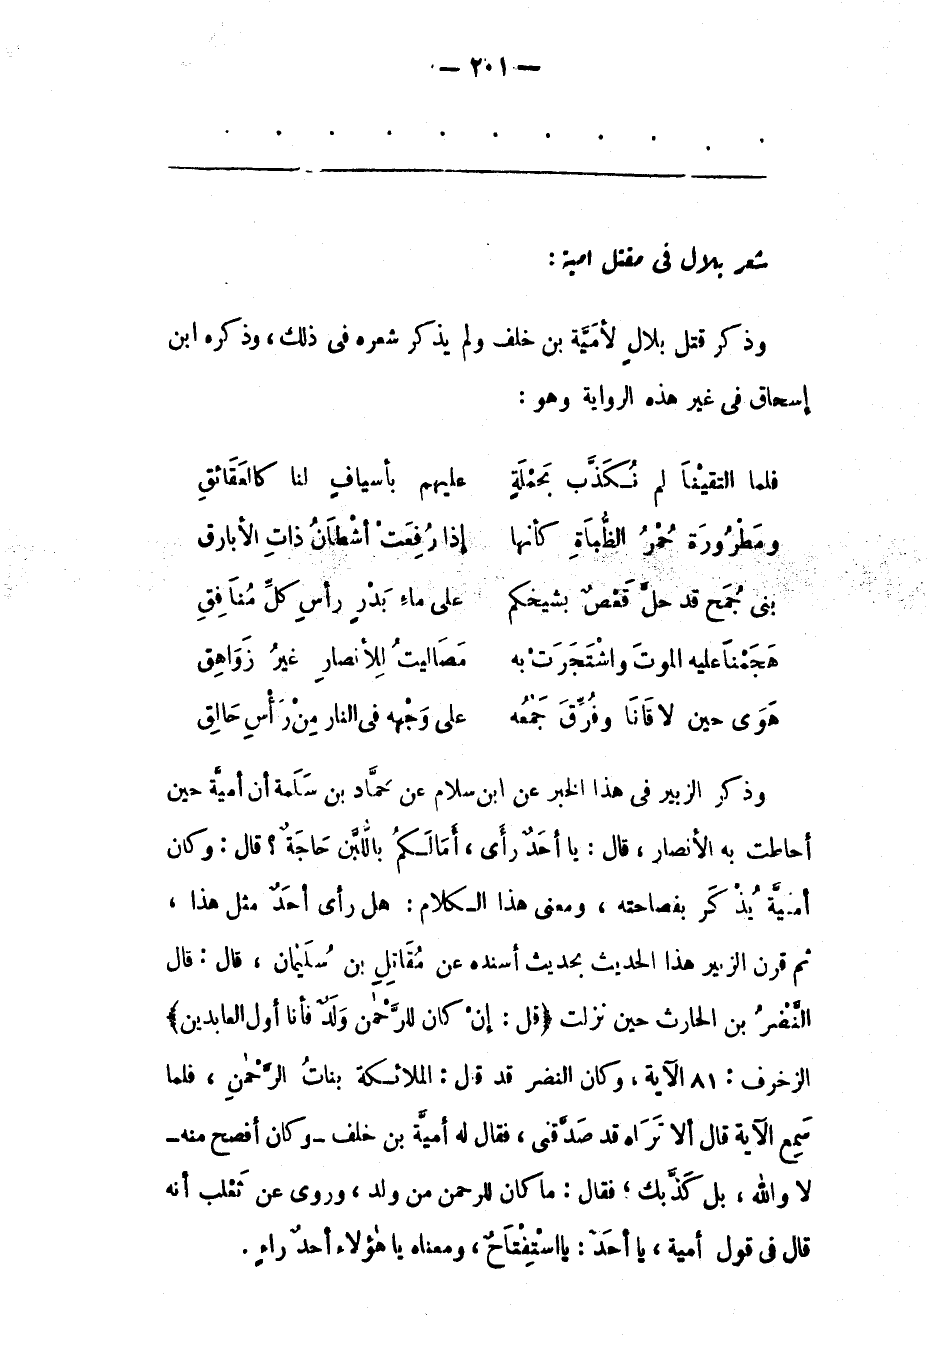 — ٢٠١ —
. . . . . . . . . . .
شعر بلال فى مقتل امية :
وذكر قتل بلالٍ لأمَيَّة بن خلف ولم يذكر شعره فى ذلك ، وذكره ابن
إسحاق فى غير هذه الرواية وهو :
فلما التقيْنَا لم نُكَذَّب بَحَمْلَةٍ عليهم بأسيافٍ لنا كالعَقَائقِ
ومَطْرُورَة حُمْرُ الظُّبَاةِ كأنها إذا رُفِعَتْ أشْطَانُ ذاتِ الأبارق
بنى جُمَح قد حلَّ قَعْصٌ بشيخكم على ماءِ بَدْرٍ رأسٍ كلِّ مُنَافِقِ
هَجَمْنَا عليه الموتَ واشْتَجَرَتْ به مَصَاليتُ لِلأنصارِ غيرُ زَوَاهِقِ
هَوَى حين لاقَانَا وفُرِّقَ جَمْعُه على وَجْهه فى النار مِنْ رَأْسِ حَالِقِ
وذكر الزبير فى هذا الخبر عن ابن سلام عن حمَّاد بن سَلَمة أن أميَّة حين
أحاطت به الأنصار ، قال : يا أحَدٌ رأَى ، أَمَالَكمُ باللَّبَن حَاجَةٌ ؟ قال : وكان
أمَيَّة يُذْكَر بفصاحته ، ومعنى هذا الكلام : هل رأى أحَدٌ مثل هذا ،
ثم قرن الزبير هذا الحديث بحديث أسنده عن مُقَاتِلِ بن سُلَيْمان ، قال : قال
النَّضْرُ بن الحارث حين نزلت ﴿قل : إنْ كان للرَّحْمٰن وَلَدٌ فأنا أول العابدين﴾
الزخرف : ٨١ الآية ، وكان النضر قد قال : الملائكة بناتُ الرَّحْمٰنِ ، فلما
سَمِع الآية قال ألا تَرَاه قد صَدَّقنى ، فقال له أميَّة بن خلف ـ وكان أفصح منه ـ
لا والله ، بل كَذَّبك ؛ فقال : ما كان للرحمن من ولد ، وروى عن ثَعْلب أنه
قال فى قول أمية ، يا أحَدٌ : يا اسْتِفْتَاحٌ ، ومعناه يا هٰؤلاء أحدٌ راءٍ .